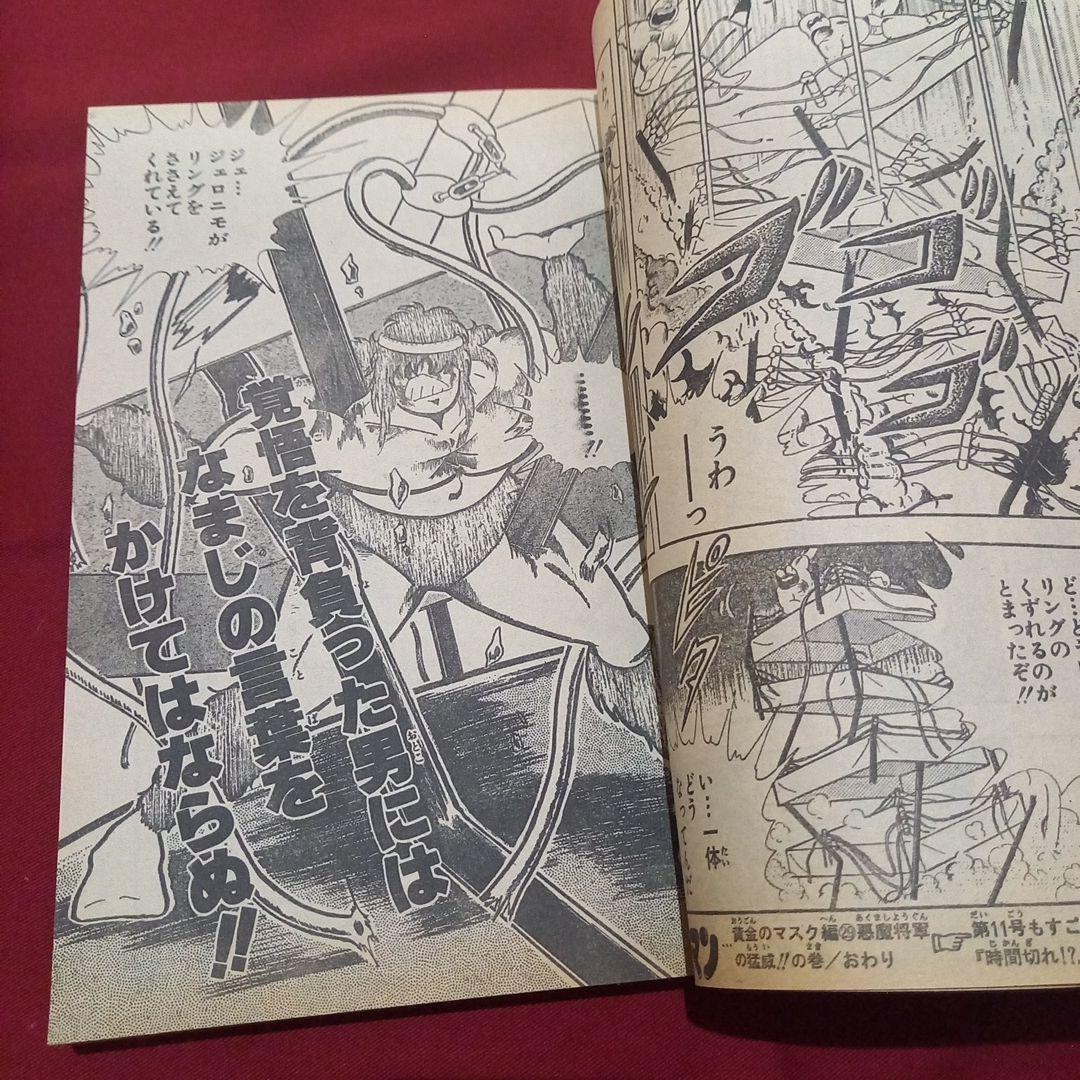 ダゴゴ
うわ
──っ
リングの
くずれるのが
とまったぞ!!
ピタ
い…一体
どう
黄金のマスク編㉙悪魔将軍
の猛威!!の巻/おわり
第11号もすご
『時間切れ!?
ジェ…
ジェロニモが
リングを
ささえて
くれている!!
………!!
覚悟を背負った男には
なまじの言葉を
かけてはならぬ!!